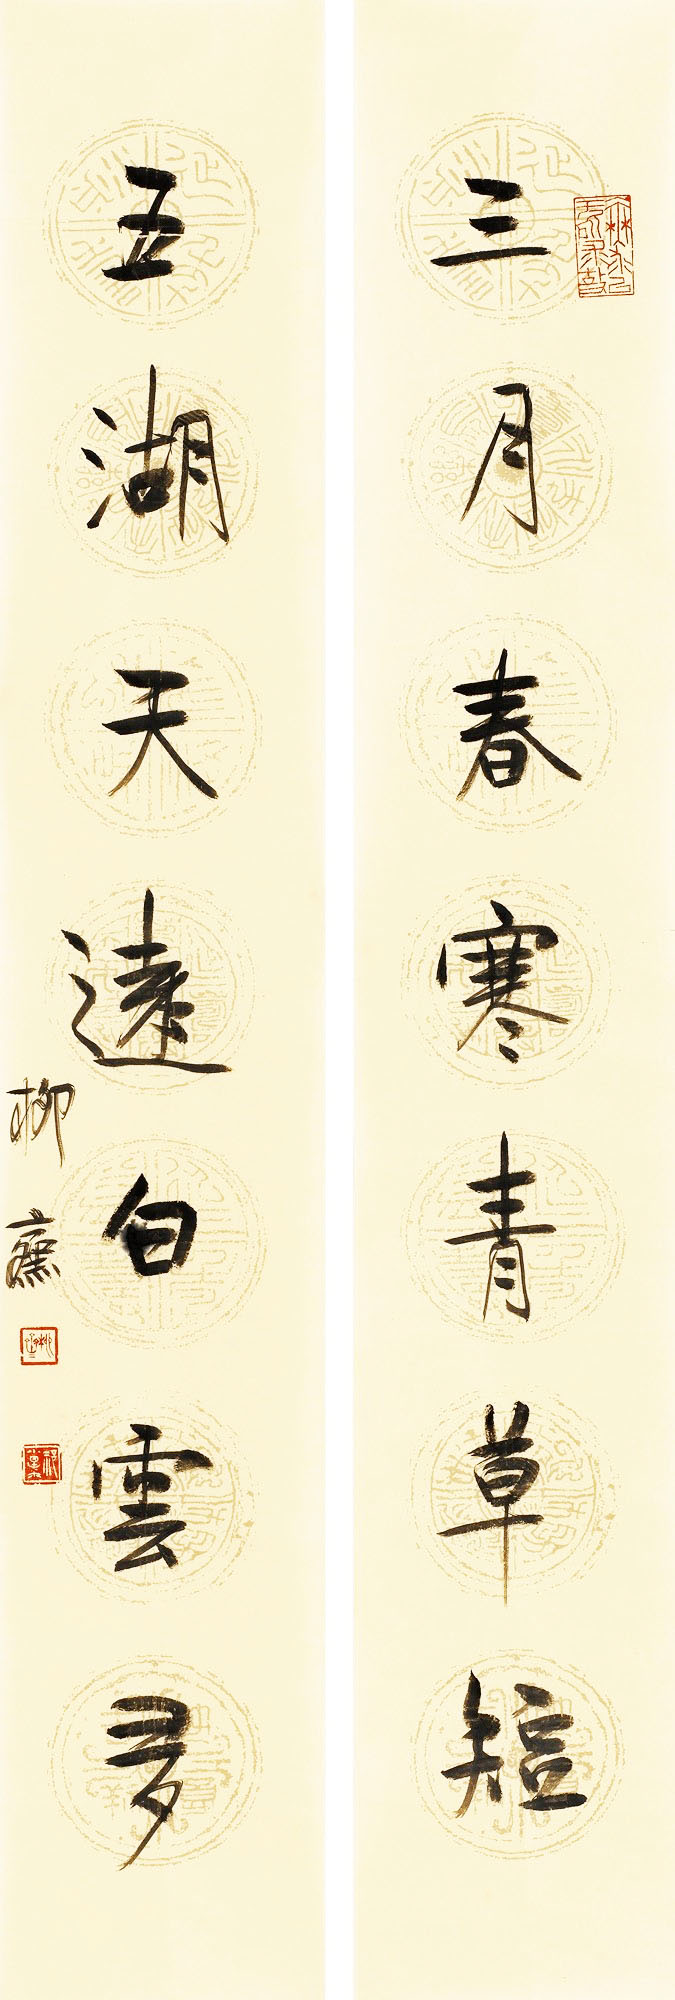 三月春寒青草短
五湖天遠白雲多
柳